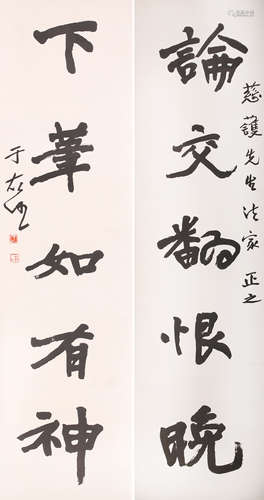 慈護先生法家正之
論交翻恨晚
下筆如有神
于右任